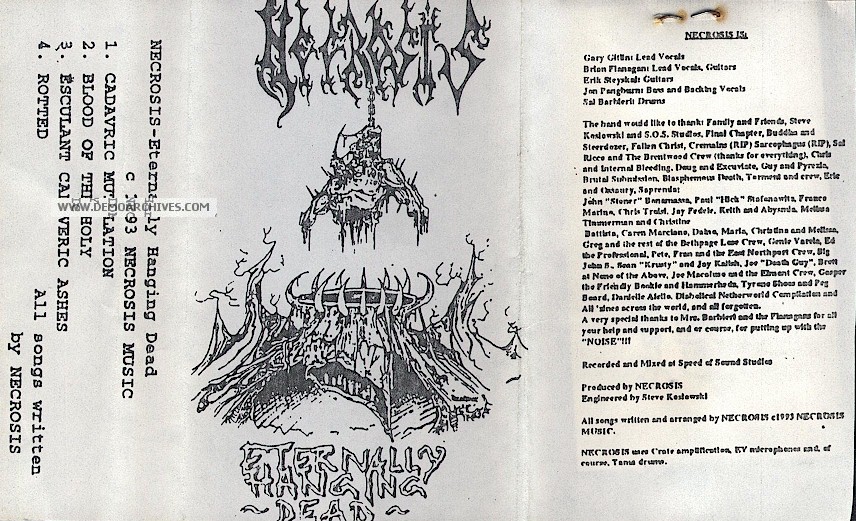 NECROSIS-Eternally Hanging Dead
c 1993 NECROSIS MUSIC
1. CADAVRIC MUTILATION
2. BLOOD OF THE HOLY
3. ESCULANT CADAVERIC ASHES
4. ROTTED
All songs written
by NECROSIS
WWW.DEMOARCHIVES.COM
NECROSIS
ETERNALLY
HANGING
~DEAD~
NECROSIS IS:
Gary Gitlin: Lead Vocals
Brian Flanagan: Lead Vocals, Guitars
Erik Steyskal: Guitars
Jon Pangburn: Bass and Backing Vocals
Sal Barbieri: Drums
The band would like to thank: Family and Friends, Steve
Koslowski and S.O.S. Studios, Final Chapter, Buddha and
Steerdozer, Fallen Christ, Cremains (RIP) Sarcophagus (RIP), Sal
Ricco and The Brentwood Crew (thanks for everything), Chris
and Internal Bleeding, Doug and Excuviate, Guy and Pyrexia,
Brutal Submission, Blasphemous Death, Torment and crew, Eric
and Ossuary, Saprendu:
John "Stoner" Bonamassa, Paul "Hick" Stefanowitz, Franco
Marino, Chris Troisi, Jay Fedele, Keith and Abysmia, Melissa
Timmerman and Christine
Battista, Caren Marciano, Daina, Maria, Christina and Melissa,
Greg and the rest of the Bethpage Lane Crew, Genio Varela, Ed
the Professional, Pete, Fran and the East Northport Crew, Big
John B., Sean "Krusty" and Jay Kalish, Joe "Death Guy", Brett
at None of the Above, Joe Macolino and the Elment Crew, Casper
the Friendly Bookie and Hammerheds, Tyrone Shoes and Peg
Board, Danielle Aiello, Diabolical Netherworld Compilation and
All 'zines across the world, and all forgotten.
A very special thanks to Mrs. Barbieri and the Flanagans for all
your help and support, and or course, for putting up with the
"NOISE"!!!
Recorded and Mixed at Speed of Sound Studios
Produced by NECROSIS
Engineered by Steve Koslowski
All songs written and arranged by NECROSIS c1993 NECROSIS
MUSIC.
NECROSIS uses Crate amplification, EV microphones and, of
course, Tama drums.